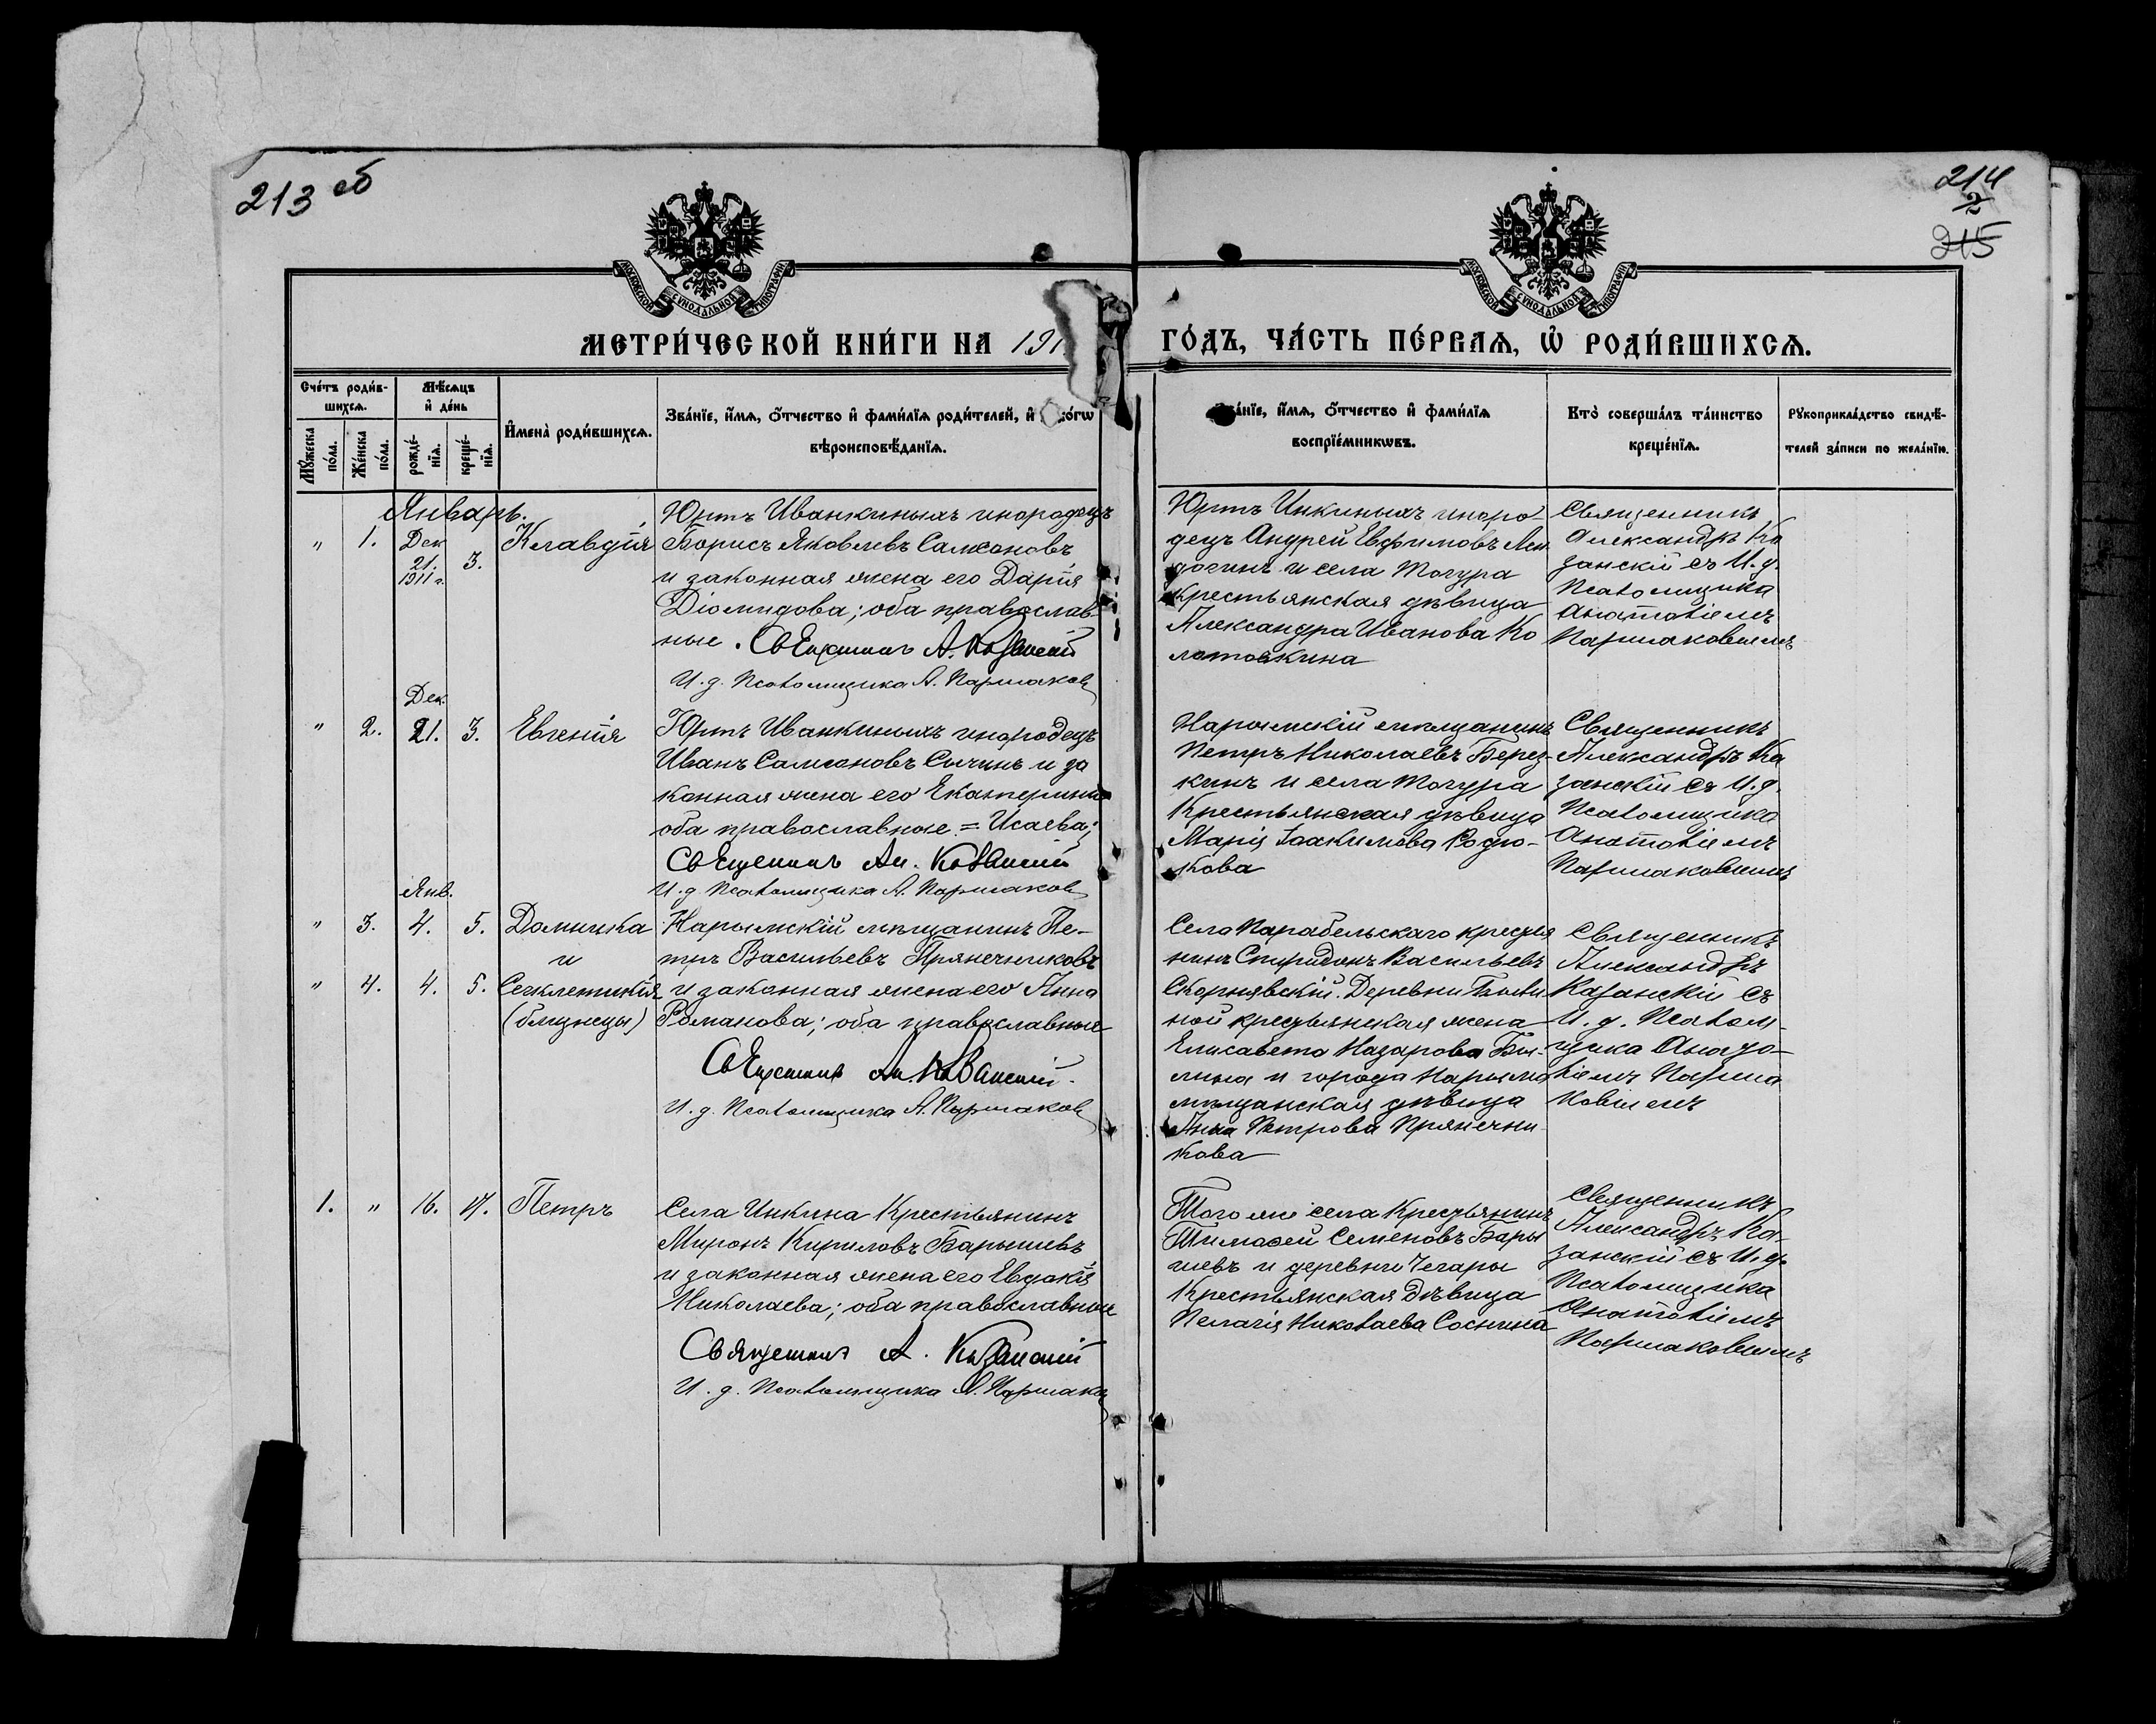 213 об
214
2
215
МОСКОВСКОЙ СУНОДАЛЬНОЙ ТИПОГРАФІИ
МОСКОВСКОЙ СУНОДАЛЬНОЙ ТИПОГРАФІИ
МЕТРИ́ЧЕСКОЙ КНИ́ГИ НА 191
ГО́ДЪ, ЧА́СТЬ ПЕ́РВАѦ, Ѡ҆ РОДИ́ВШИХСѦ.
Сче́тъ роди́в-
шихсѧ.
Мѣ́сѧцъ
и҆ де́нь
Му́жеска по́ла.
Же́нска по́ла.
рожде́-нїѧ.
креще́-нїѧ.
И҆мена̀ роди́вшихсѧ.
Зва́нїе, и҆́мѧ, ѻ҆́тчество и҆ фами́лїѧ роди́телей, и҆
вѣроисповѣ́данїѧ.
Зва́нїе, и҆́мѧ, ѻ҆́тчество и҆ фами́лїѧ
воспрїе́мникѡвъ.
Кто̀ соверша́лъ та́инство
креще́нїѧ.
Рꙋкоприкла́дство свидѣ́-
телей за́писи по жела́нїю.
Январь.
" 1. Дек 21. 1911 г. 3. Клавдія
Юртъ Иванкиныхъ инородецъ
Борисъ Яковлевъ Самсоновъ
и законная жена его Дарія
Діомидова; оба православ-
ные. Священникъ А. Казанскій
И. д. Псаломщика А. Паршаковъ
Юртъ Инкиныхъ иноро-
децъ Андрей Евфимовъ
и села Тогура
крестьянская дѣвица
Александра Иванова Ко
лотовкина
Священникъ
Александръ Ка
занскій съ И. д.
Псаломщика
Анатоліемъ
Паршаковымъ
Дек.
" 2. 21. 3. Евгенія
Юртъ Иванкиныхъ инородецъ
Иванъ Самсоновъ Сычинъ и за
конная жена его Екатерина
оба православные = Исаева;
Священникъ Ал. Казанскій
И. д. Псаломщика А. Паршаковъ
Нарымскій мѣщанинъ
Петръ Николаевъ Берез-
кинъ и села Тогура
Крестьянская дѣвица
Марія Іоакимова Родю-
кова
Священникъ
Александръ Ка
занскій съ И. д.
Псаломщика
Анатоліемъ
Паршаковымъ
Янв.
" 3. 4. 5. Домника
и
" 4. 4. 5. Сигклитикія
(близнецы)
Нарымскій мѣщанинъ Пе-
тръ Васильевъ Прянечниковъ
и законная жена его Анна
Романова; оба православные
Священникъ Ал. Казанскій.
И. д. Псаломщика А. Паршаковъ
Села Парабельскаго крестья
нинъ Спиридонъ Васильевъ
Скорнявскій. Деревни
ной крестьянская жена
Елисавета Назарова Бы-
лина и города Нарыма
мѣщанская дѣвица
Анна Петрова Прянечни-
кова
Священникъ
Александръ
Казанскій съ
И. д. Псалом-
щика Анато-
ліемъ Парша
ковымъ
1. " 16. 17. Петръ
Села Инкина Крестьянинъ
Миронъ Кириловъ Барышевъ
и законная жена его Евдокія
Николаева; оба православные
Священникъ А. Казанскій
И. д. Псаломщика А. Паршаковъ
Того же села Крестьянинъ
Тимоѳей Семеновъ Бары
шевъ и деревни Чегары
Крестьянская дѣвица
Пелагія Николаева Соснина
Священникъ
Александръ Ка-
занскій съ И. д.
Псаломщика
Анатоліемъ
Паршаковымъ